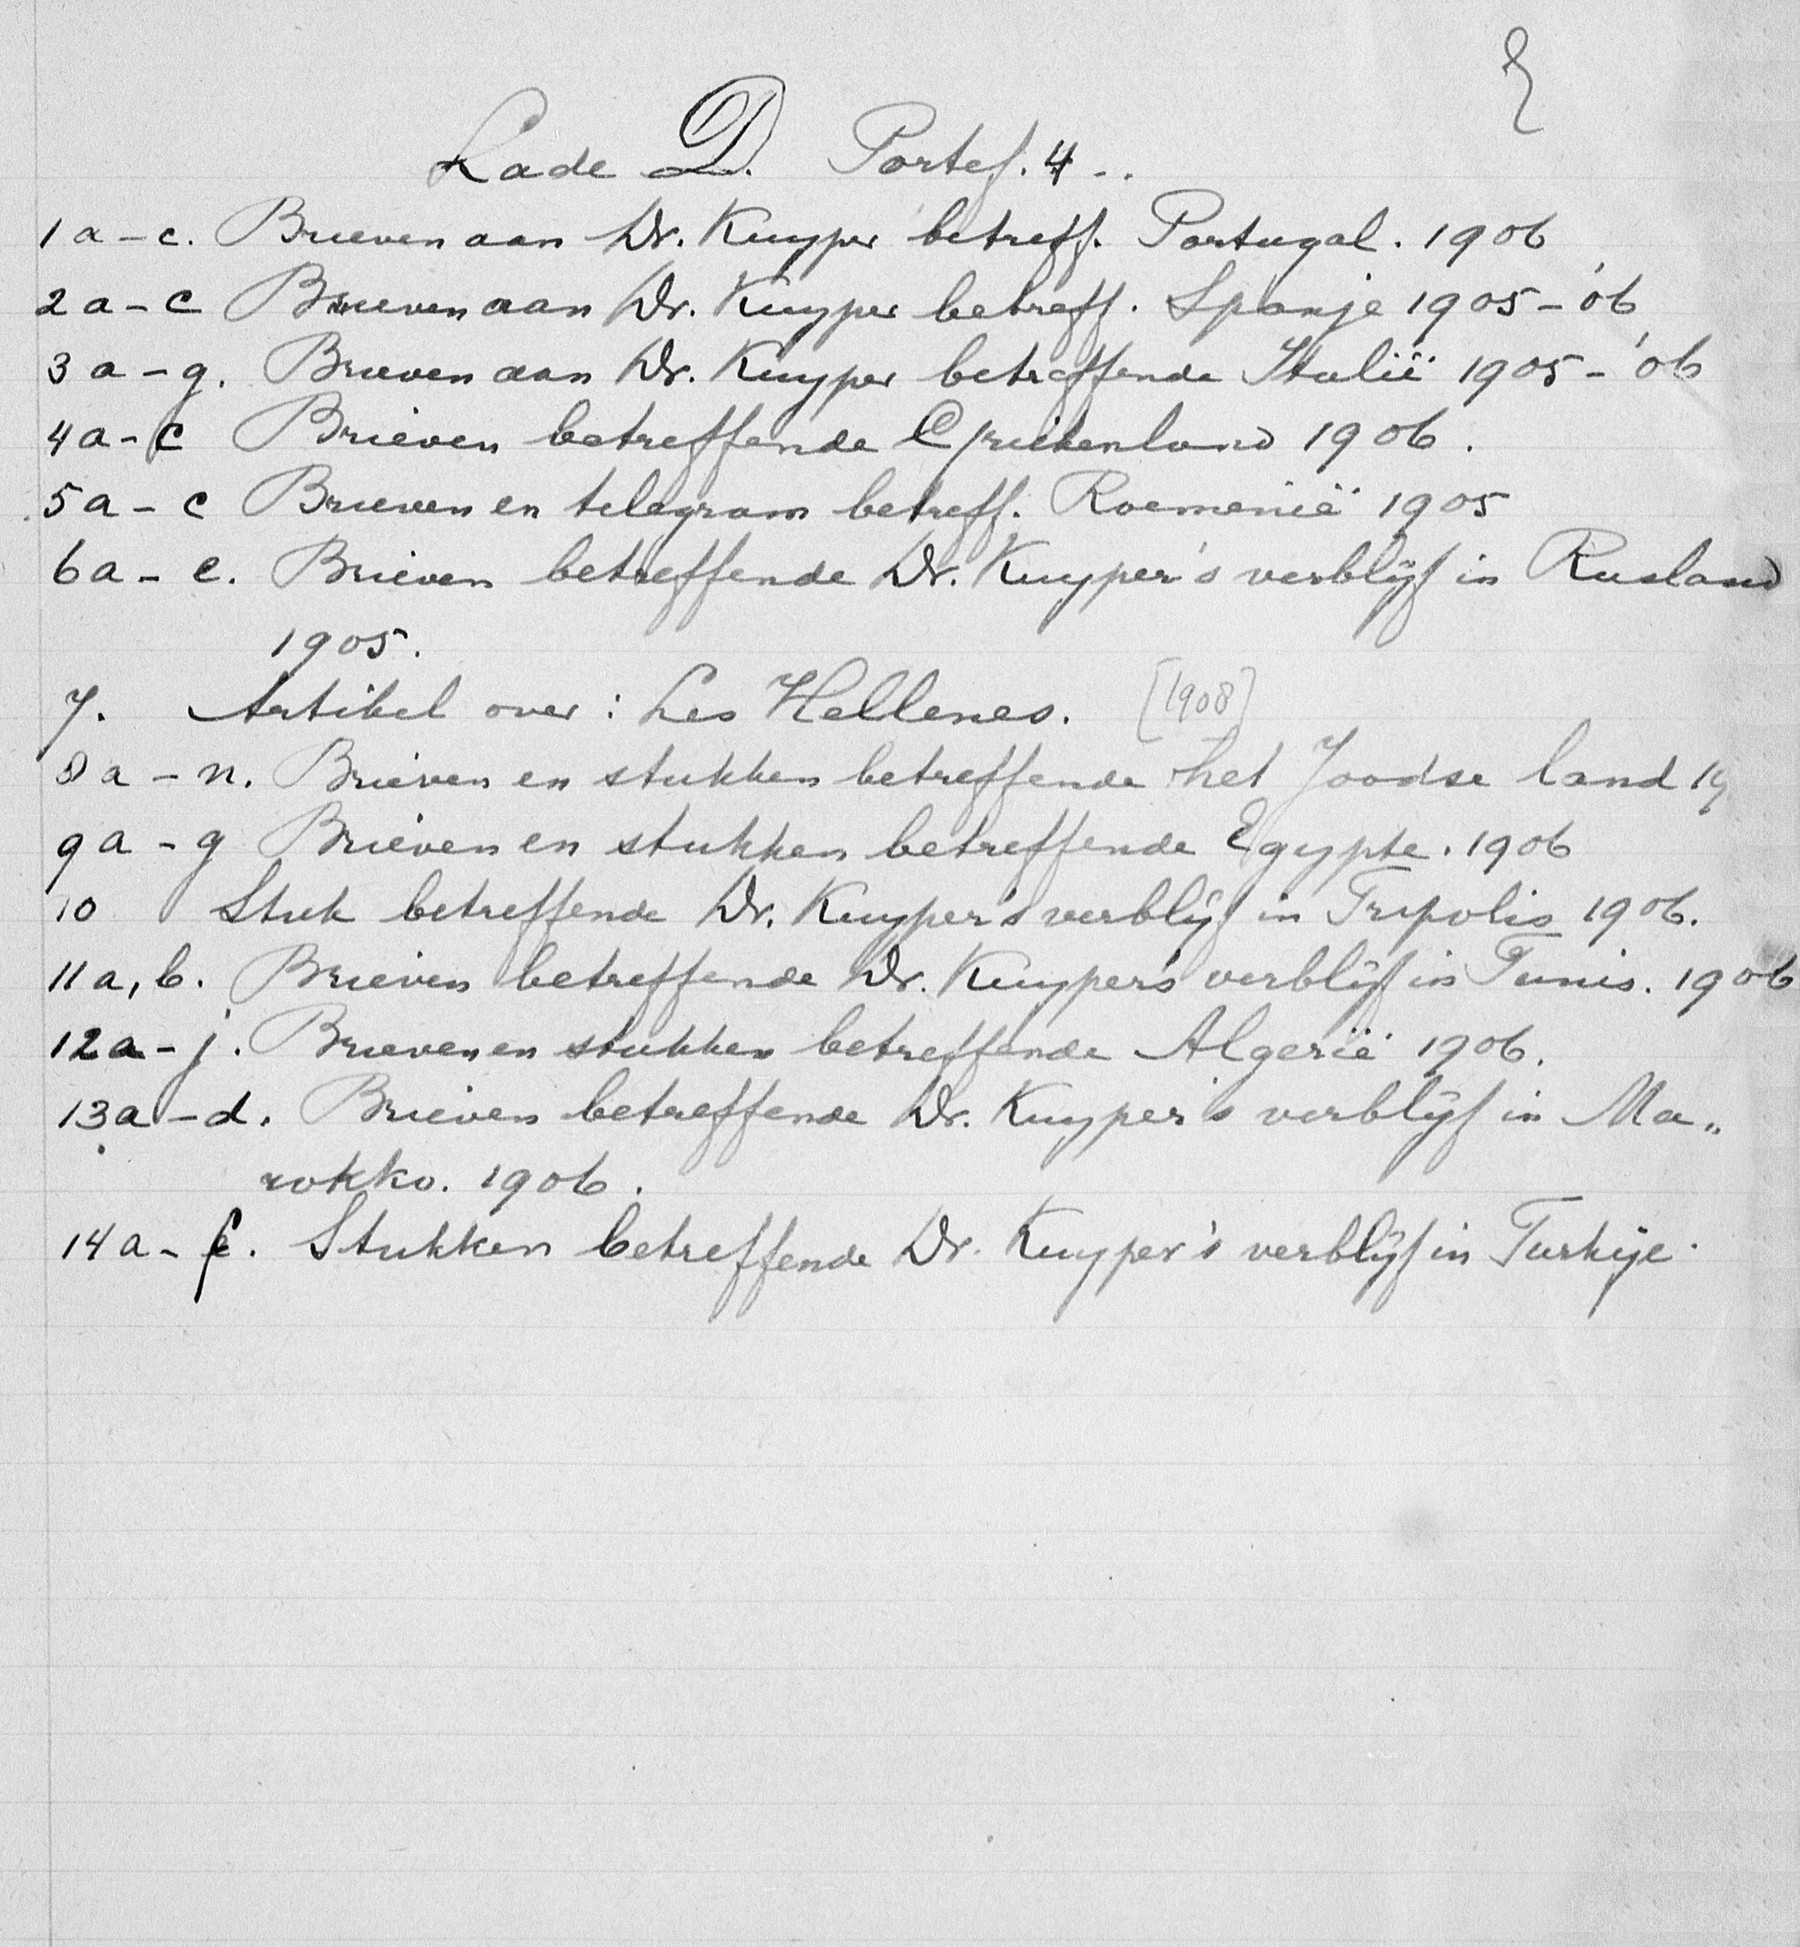 Lade D. Portef. 4..
1 a - c. Brieven aan Dr. Kuyper betreff. Portugal. 1906
2 a - c Brieven aan Dr. Kuyper betreff. Spanje 1905 - '06
3 a - g. Brieven aan Dr. Kuyper betreffende Italië 1905 - '06
4 a - c Brieven betreffende Griekenland 1906.
5 a - c Brieven en telegram betreff. Roemenië 1905
6 a - e. Brieven betreffende Dr. Kuyper's verblijf in Rusland
1905.
7. Artikel over: Les Hellenes. [1908]
8 a - n. Brieven en stukken betreffende het Joodse land 19
9 a - g Brieven en stukken betreffende Egypte. 1906
10 Stuk betreffende Dr. Kuyper's verblijf in Tripolis 1906.
11 a, b. Brieven betreffende Dr. Kuyper's verblijf in Tunis. 1906
12 a - j. Brieven en stukken betreffende Algerië 1906.
13 a - d. Brieven betreffende Dr. Kuyper's verblijf in Ma„
rokko. 1906.
14 a - f. Stukken betreffende Dr. Kuyper's verblijf in Turkije.